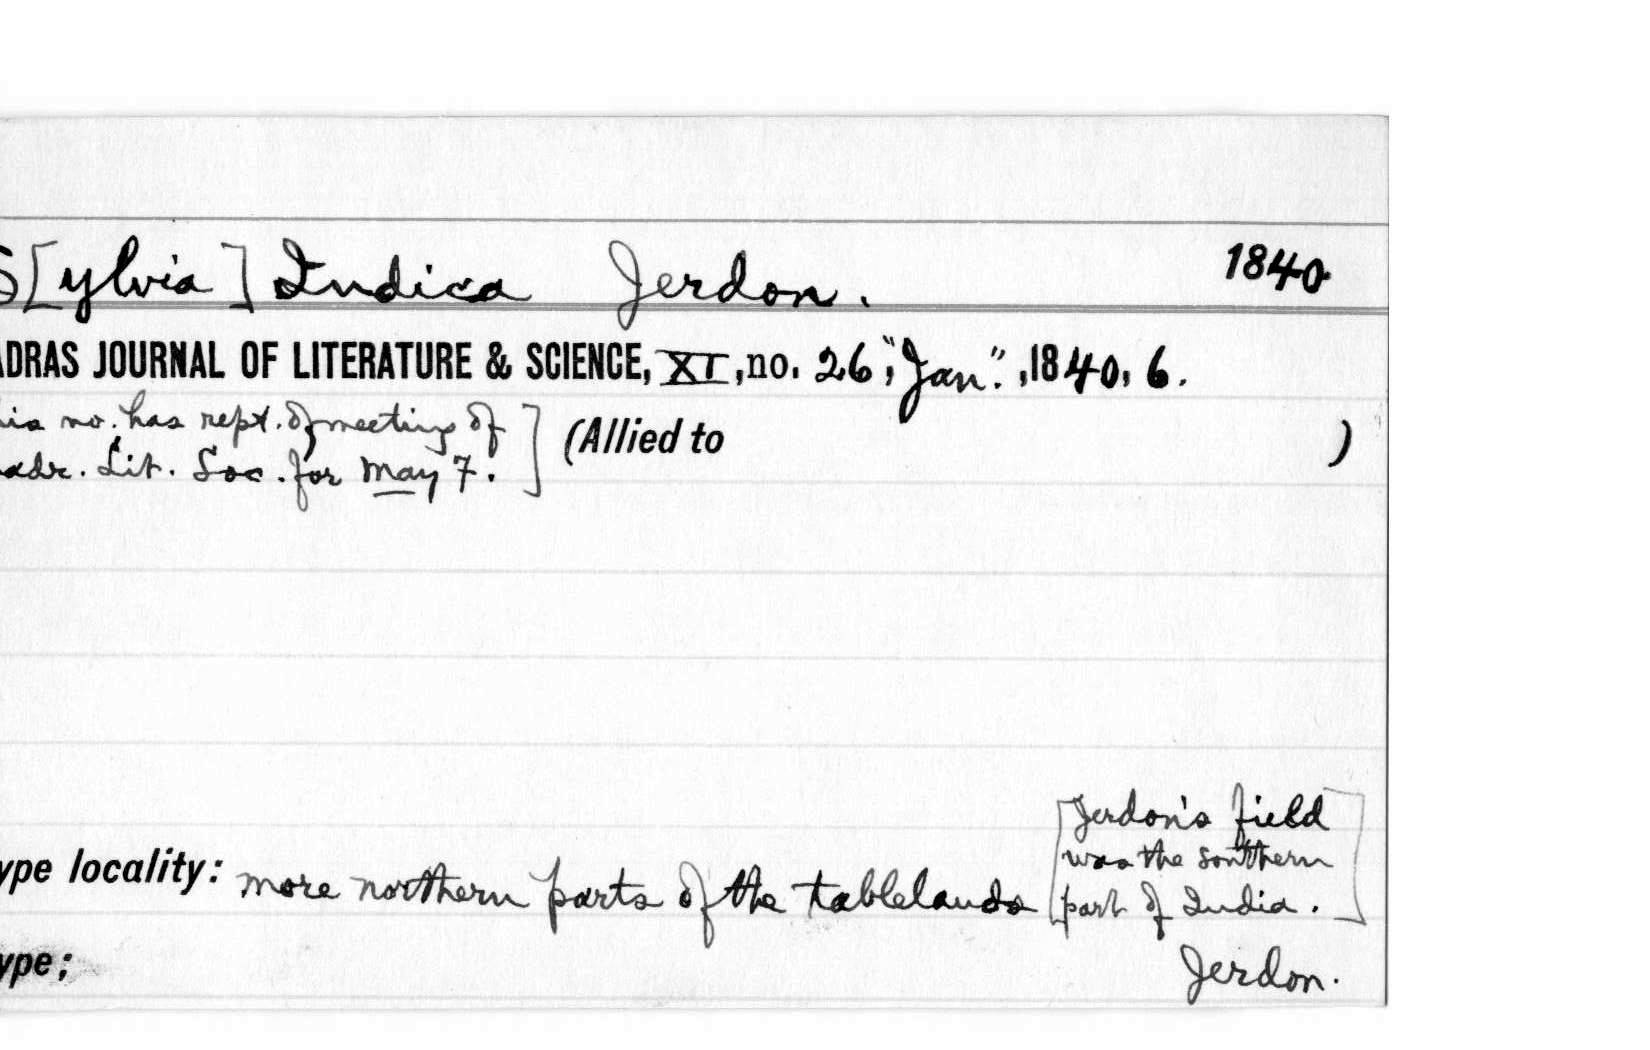 S[ylvia] Indica Jerdon. 1840
ADRAS JOURNAL OF LITERATURE & SCIENCE, XI, no. 26, "Jan.", 1840, 6.
his no. has rept. of meeting of] (Allied to )
adr. Lit. Soc. for May 7.
Jerdon's field
was the southern
part of India.
ype locality: more northern parts of the tablelands
ype;
Jerdon.